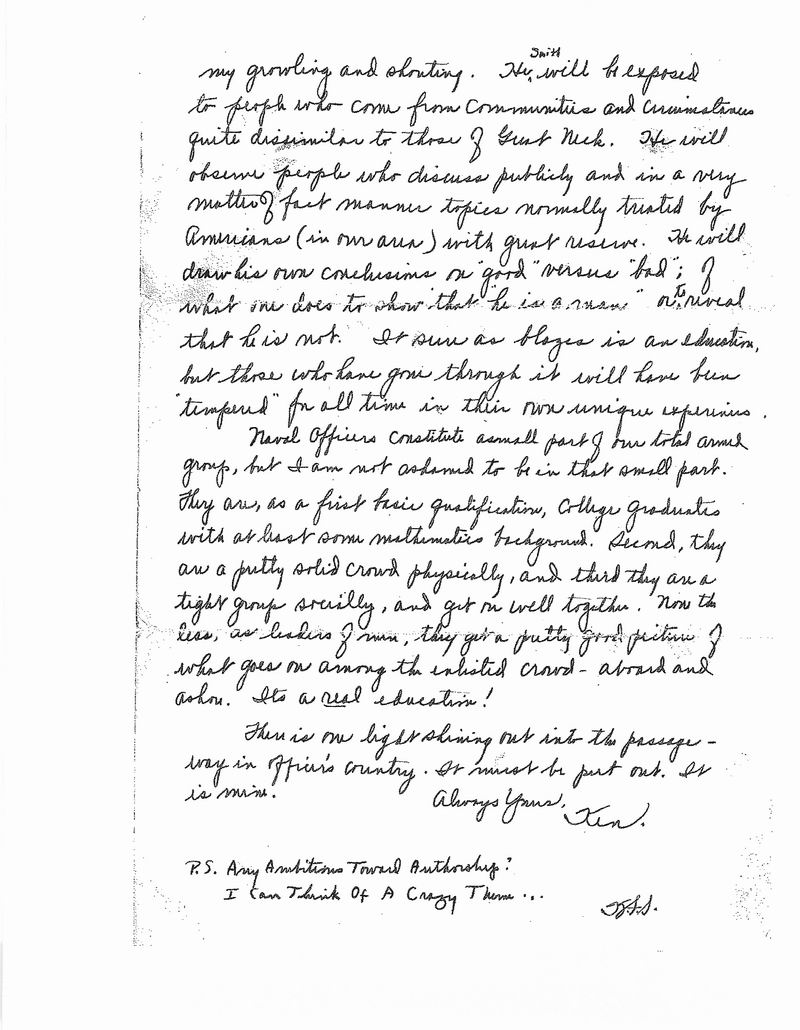 my growling and shouting. He, Smith will be exposed
to people who come from communities and circumstances
quite dissimilar to those of Great Neck. He will
observe people who discuss publicly and in a very
matter of fact manner topics normally treated by
Americans (in our area) with great reserve. He will
draw his own conclusions on "good" versus "bad"; of
what one does to show that "he is a man" or to reveal
that he is not. It sure as blazes is an education,
but those who have gone through it will have been
"tempered" for all time in their own unique experiences.
Naval Officers constitute a small part of our total armed
group, but I am not ashamed to be in that small part.
They are, as a first basic qualification, College graduates
with at least some mathematics background. Second, they
are a pretty solid crowd physically, and third they are a
tight group socially, and get on well together. None the
less, as leaders of men, they get a pretty good picture of
what goes on among the enlisted crowd - aboard and
ashore. Its a real education!
There is one light shining out into the passage-
way in officer's country. It must be put out. It
is mine.
Always Yours,
Ken.
P.S. Any Ambitions Toward Authorship?
I Can Think Of A Crazy Theme ...